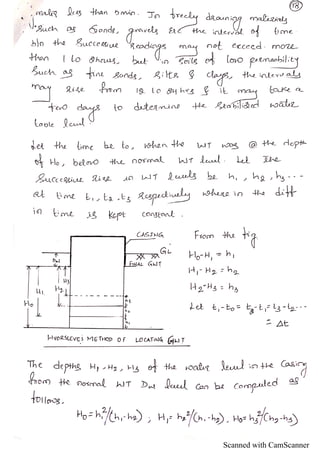 18
makes less than 5min. In freely draining materials
such as Sands, gravels etc the interval of time
b/n the Successive readings may not exceed more
than 1 to 2 hours, but in soils of low permeability
Such as fine Sands, Silts & Clays, the intervals
may rise from 12 to 24 hrs & it may take a
few days to determine the Stabilized water
table level.
Let the time be to, when the WT was @ the depth
of Ho, below the normal WT level. Let The
Successive rise in WT levels be h1, h2, h3 ...
at time t1, t2, t3 respectively where in the diff
in time is kept constant.
CASING
GL
FINAL GWT
Dw
Ho
H1
H2
H3
HVORSLEV'S METHOD OF LOCATING GWT
From the fig
Ho-H1 = h1
H1-H2 = h2
H2-H3 = h3
Let t1-to = t2-t1 = t3-t2 ...
= Δt
The depths H1, H2, H3 of the water level in the Casing
from the normal WT Dw level can be computed as
follows.
Ho = h1²/(h1-h2) ; H1 = h2²/(h1-h2), H2 = h3²/(h2-h3)
Scanned with CamScanner